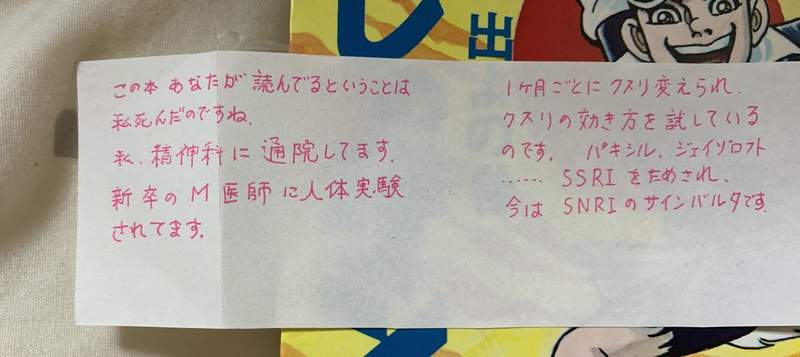 この本 あなたが 読んでるということは
私死んだのですね.
私、精神科に通院してます.
新卒のM医師に人体実験
されてます.
1ヶ月ごとにクスリ変えられ.
クスリの効き方を試している
のです. パキシル、ジェイゾロフト
…… SSRIをためされ、
今は SNRIのサインバルタです.
出